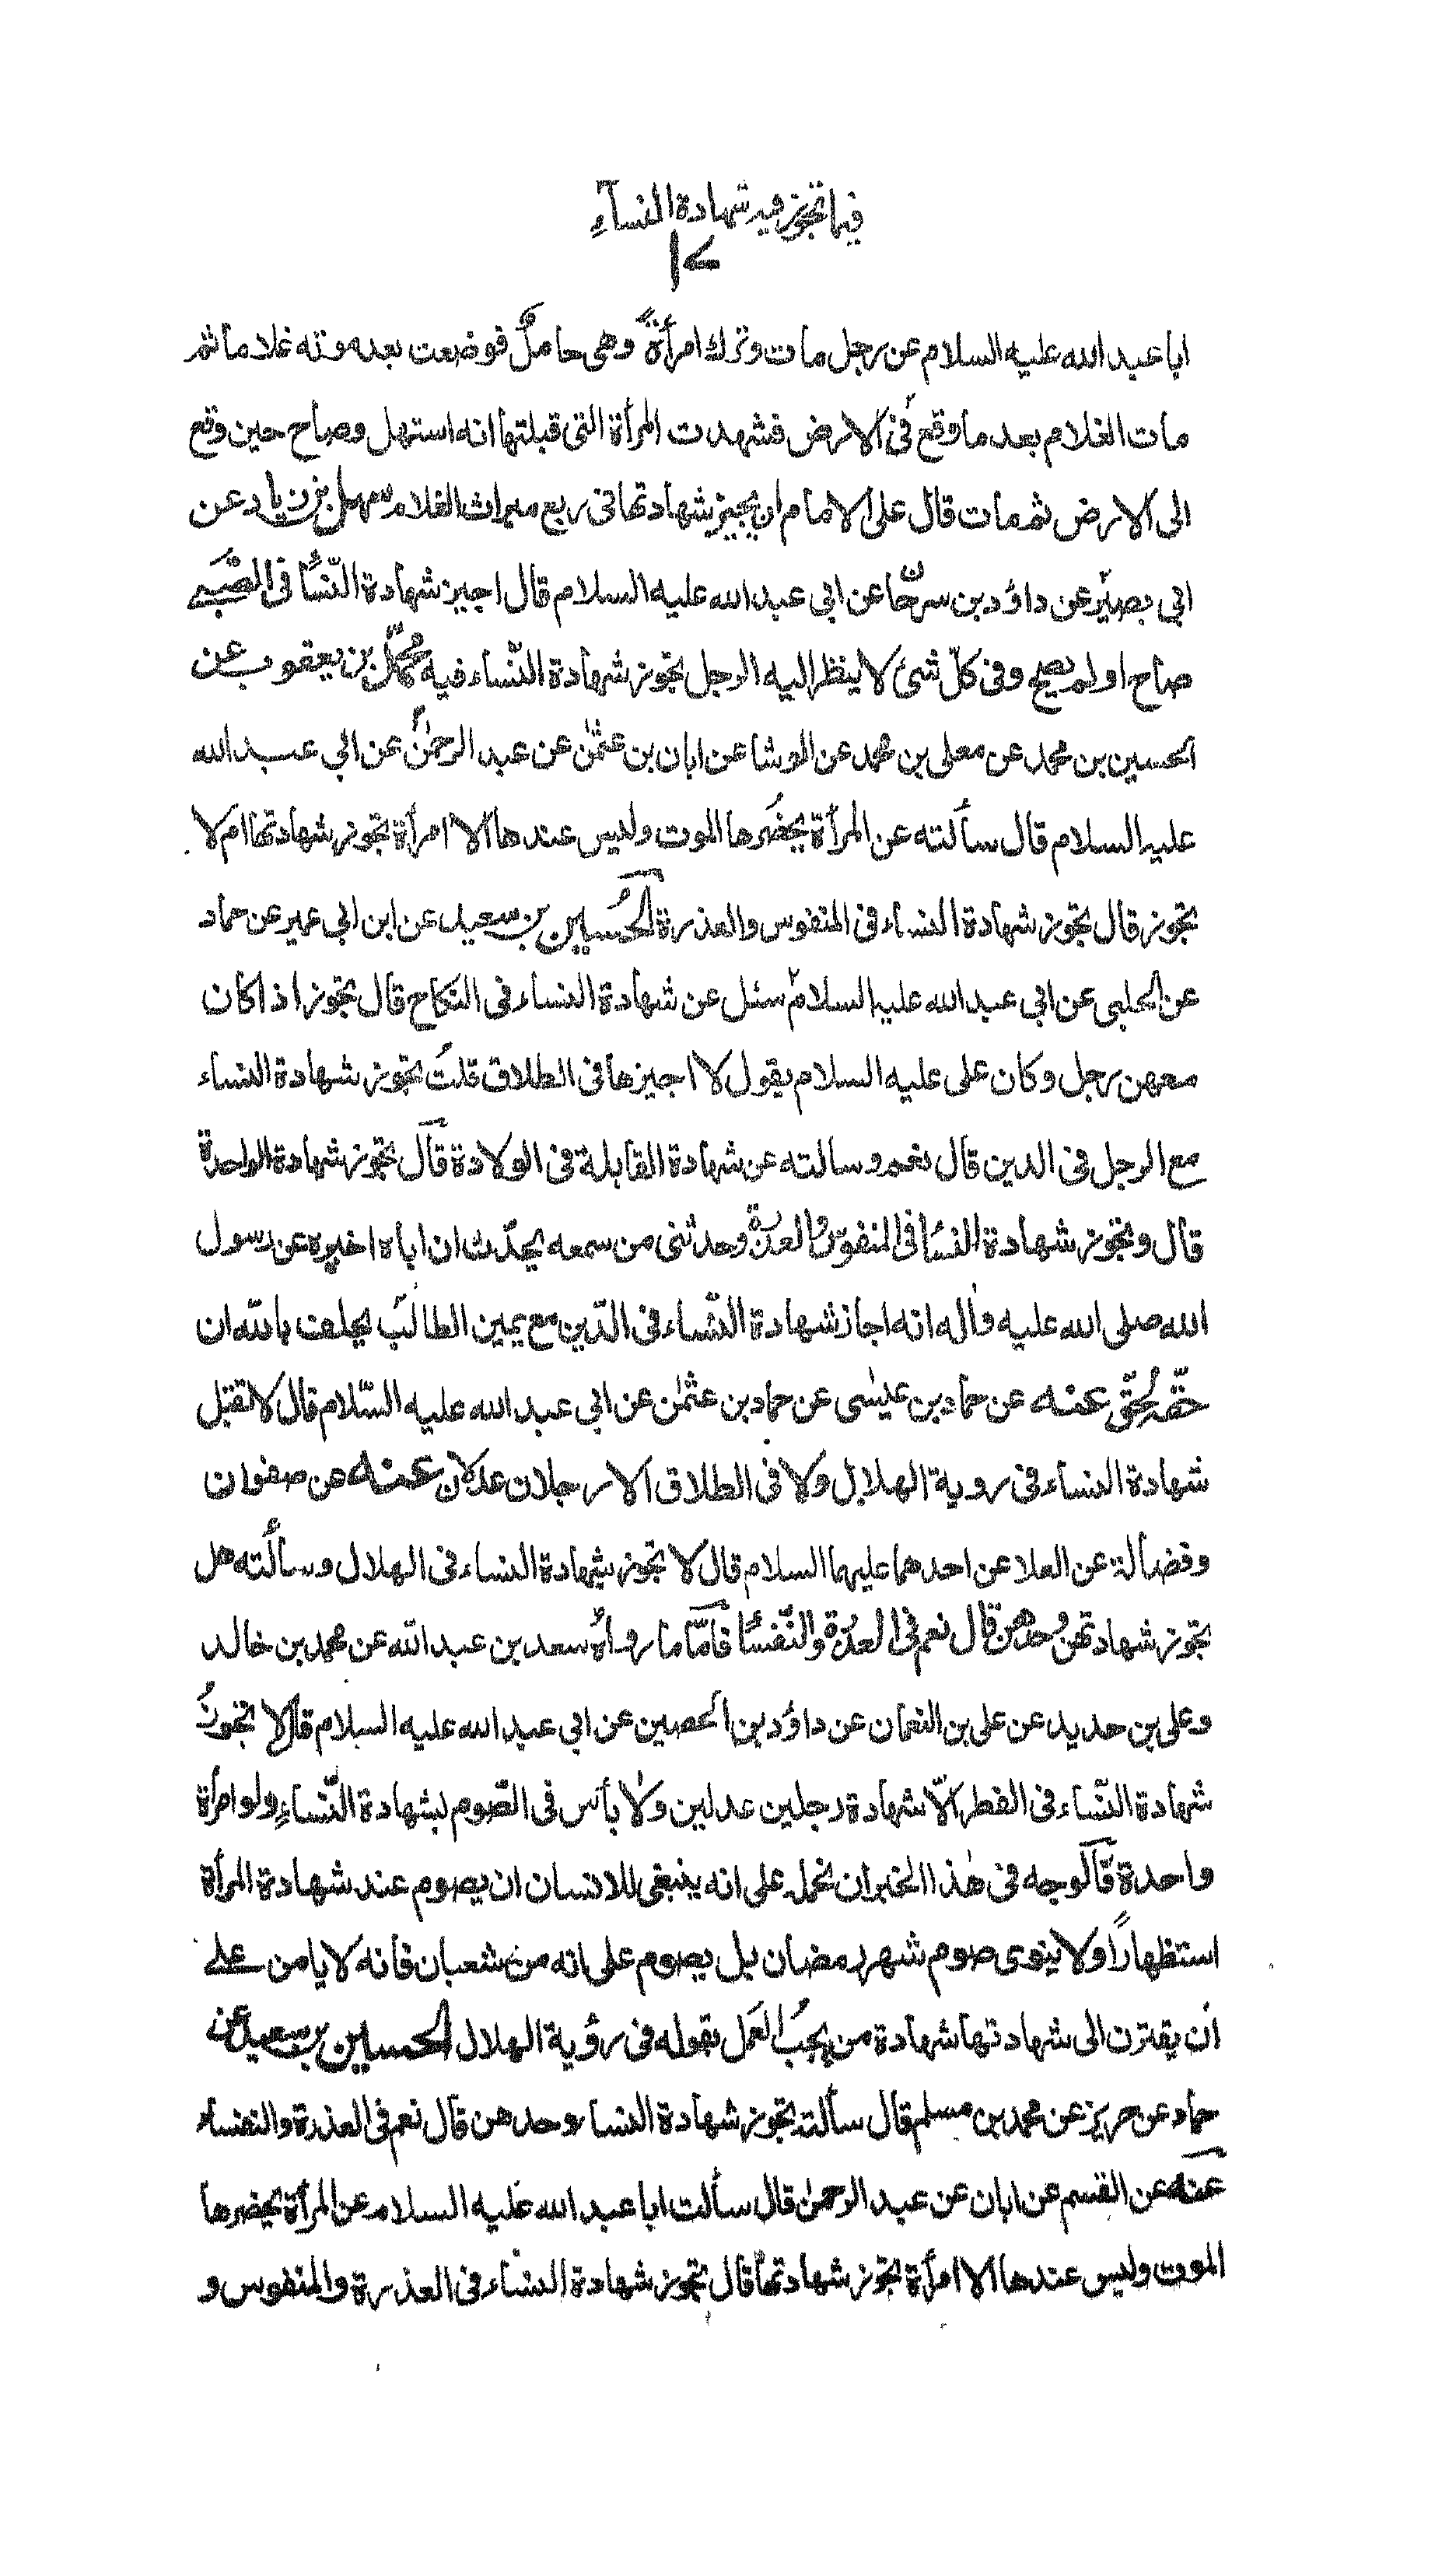 فيما تجوز فيه شهادة النسآءِ
ابا عبد الله عليه السلام عن رجل مات وترك امرأة وهى حامل فوضعت بعد موته غلاما ثم
مات الغلام بعد ما وقع فى الارض فشهدت المرأة التى قبلتها انه استهل وصاح حين وقع
الى الارض ثم مات قال على الامام ان يجيز شهادتها فى ربع ميراث الغلام سهل بن زياد عن
ابى بصير عن داؤد بن سرحان عن ابى عبد الله عليه السلام قال اجيز شهادة النّسا فى الصّبے
صاح او لم يصح وفى كلّ شئ لا ينظر اليه الرجل تجوز شهادة النّساء فيه محمّد بن يعقوب عن
الحسين بن محمد عن معلى بن محمد عن الوشا عن ابان بن عثمٰن عن عبد الرحمٰن عن ابى عبد الله
عليه السلام قال سألته عن المرأة يحضُرها الموت وليس عندها الا امرأة تجوز شهادتها ام لا
تجوز قال تجوز شهادة النساء فى المنفوس والعذرة الحُسين بن سعيد عن ابن ابى عمير عن حماد
عن الحلبى عن ابى عبد الله عليه السلام سئل عن شهادة النساء فى النكاح قال تجوز اذا كان
معهن رجل وكان على عليه السلام يقول لا اجيزها فى الطلاق قلتُ تجوز شهادة النساء
مع الرجل فى الدين قال نعم وسالته عن شهادة القابلة فى الولادة قال تجوز شهادة الواحدة
قال وتجوز شهادة النسا فى المنفوس والعذرة وحدثنى من سمعه يحدّث ان اباه اخبره عن رسول
الله صلى الله عليه واٰله انه اجاز شهادة النّساء فى الدّين مع يمين الطالب يحلف باللّه ان
حقّه لحقّ عنه عن حماد بن عيسٰى عن حماد بن عثمٰن عن ابى عبد الله عليه السّلام قال لا تقبل
شهادة النساء فى روية الهلال ولا فى الطلاق الا رجلان عدلان عنه عن صفوان
وفضالة عن العلا عن احدهما عليهما السلام قال لا تجوز شهادة النساء فى الهلال وسألته هل
تجوز شهادتهن وحدهن قال نعم فى العذرة والنّفسا فامّا ما رواه سعد بن عبد اللّه عن محمد بن خالد
وعلى بن حديد عن على بن النعمان عن داؤد بن الحصين عن ابى عبد الله عليه السلام قال لا تجوز
شهادة النّساء فى الفطر الّا شهادة رجلين عدلين ولا بأس فى الصّوم بشهادة النّساءِ ولو امرأة
واحدة فالوجه فى هٰذا الخبر ان نحمله على انه ينبغى للانسان ان يصوم عند شهادة المرأة
استظهاراً ولا ينوى صوم شهر رمضان بل يصوم على انه من شعبان فانه لا يامن علے
ان يقترن الى شهادتها شهادة من يجبُ العمل بقوله فى رؤية الهلال الحسين بن سعيد عن
حماد عن حريز عن محمد بن مسلم قال سألته تجوز شهادة النساء وحدهن قال نعم فى العذرة والنفساء
عنه عن القسم عن ابان عن عبد الرحمٰن قال سألت ابا عبد الله عليه السلام عن المرأة يحضرها
الموت وليس عندها الا امرأة تجوز شهادتها قال تجوز شهادة النساء فى العذرة والمنفوس و